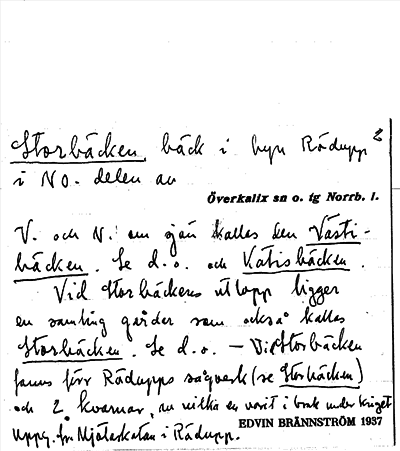 Storbäcken, bäck i byn Rödupp 2
i NO. delen av
Överkalix sn o. tg Norrb. l.
V. och N. om sjön kallas den Västi-
bäcken. Se d.o. och Katisbäcken.
Vid Storbäckens utlopp ligger
en samling gårder som också kallas
Storbäcken. Se d.o. - Vid Storbäcken
fanns förr Rödupps sågverk (se Storbäcken)
och 2 kvarnar, av vilka en varit i bruk under kriget
Uppg. fr. i Rödupp.
EDVIN BRÄNNSTRÖM 1937